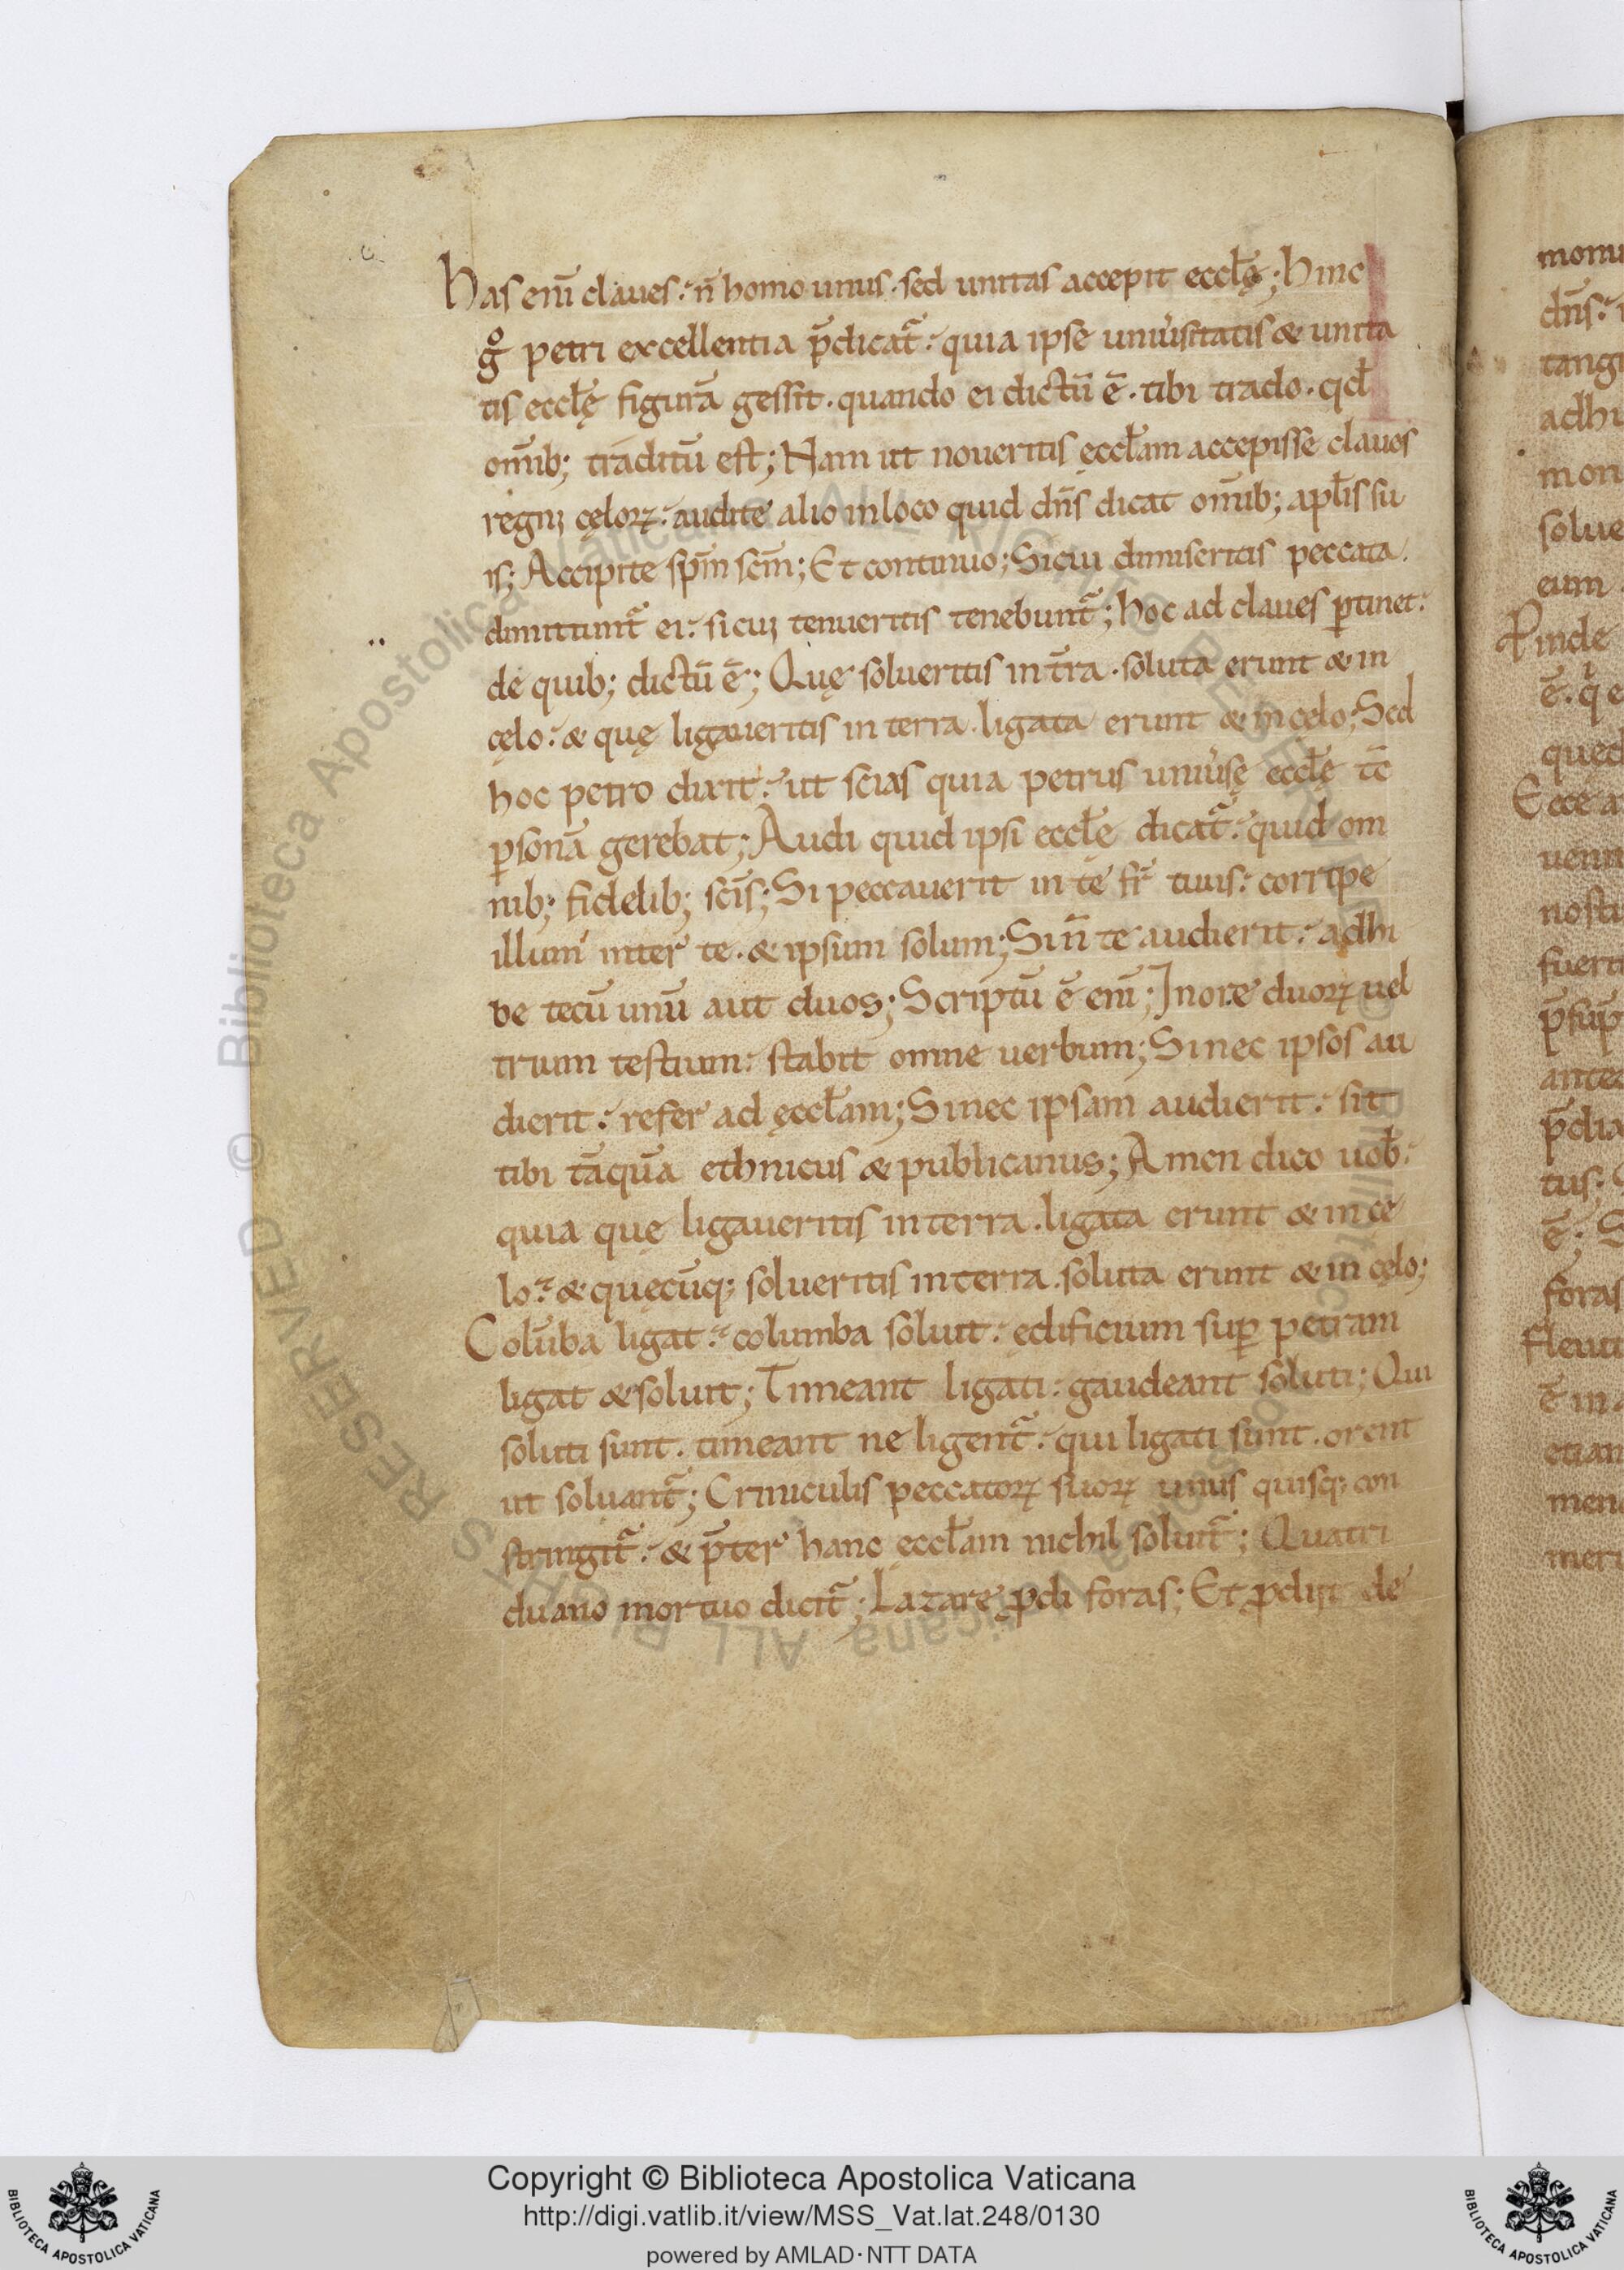 Has eni̅ claues · n̅ homo unus · sed unitas accepit eccl̅ę ; Hinc
gͦ petri excellentia p̅dicat᷒ · quia ipse uniu̕sitatis & unita
tis eccl̅ę figura̅ gessit · quando ei dictu̅ e̅ · tibi trado · qd̅
om̅ib; traditu̅ est ; Nam ut noueritis eccl̅am accepisse claues
regni cęloꝝ · audite alio inloco quid dn̅s dicat om̅ib; apl̅is su
is ; Accipite sp̅m sc̅m ; Et continuo ; Sicui dimiseritis peccata ·
dimittunt᷒ ei · sicui tenueritis tenebunt᷒ ; hoc ad claues ꝑtinet ·
de quib; dictu̅ e̅ ; Quę solueritis in t̅ra · soluta erunt & in
cęlo · & quę ligaueritis in terra · ligata erunt & in cęlo ; Sed
hoc petro dixit · ut scias quia petrus uniu̕sę eccl̅ę tc̅
ꝑsona̅ gerebat ; Audi quid ipsi eccl̅ę dicat᷒ · quid om
nib; fidelib; sc̅is ; Si peccauerit in te fr̅ tuus · corripe
illum inter te · & ipsum solum ; Sin̅ te audierit · adhi
be tecu̅ unu̅ aut duos ; Scriptu̅ e̅ eni̅ ; Inore duoꝝ uel
trium testium · stabit omne uerbum ; Sinec ipsos au
dierit · refer ad ęccl̅am ; Sinec ipsam audierit · sit
tibi ta̅qua̅ ethnicus & publicanus ; Amen dico uob̅ ·
quia quę ligaueritis in terra · ligata erunt & in cę
lo · & quęcu̅q; solueritis in terra · soluta erunt & in cęlo ;
Colu̅ba ligat · columba soluit · ędificium suꝑ petram
ligat & soluit ; Timeant ligati · gaudeant soluti ; Qui
soluti sunt · timeant ne ligent᷒ · qui ligati sunt · orent
ut soluant᷒ ; Criniculis peccatoꝝ suoꝝ unus quisq; con
stringit᷒ · & p̅ter hanc ęccl̅am nichil soluit᷒ ; Quatri
duano mortuo dicit᷒ ; Lazare ꝓdi foras ; Et ꝓdiit de
monu
dn̅s ·
tang
adhu
mon
solue
eum
Pinde
e̅ ·
qued
Ecce a
uenit
nostr
fuert
ante
p̅dix
tus ;
e̅ ; S
foras
fleuit
e̅ in
etiam
men
meri
© Biblioteca Apostolica Vaticana ALL RIGHTS RESERVED
© Biblioteca Apostolica Vaticana ALL RIGHTS RESERVED
Copyright © Biblioteca Apostolica Vaticana
http://digi.vatlib.it/view/MSS_Vat.lat.248/0130
powered by AMLAD·NTT DATA
BIBLIOTECA APOSTOLICA VATICANA
BIBLIOTECA APOSTOLICA VATICANA